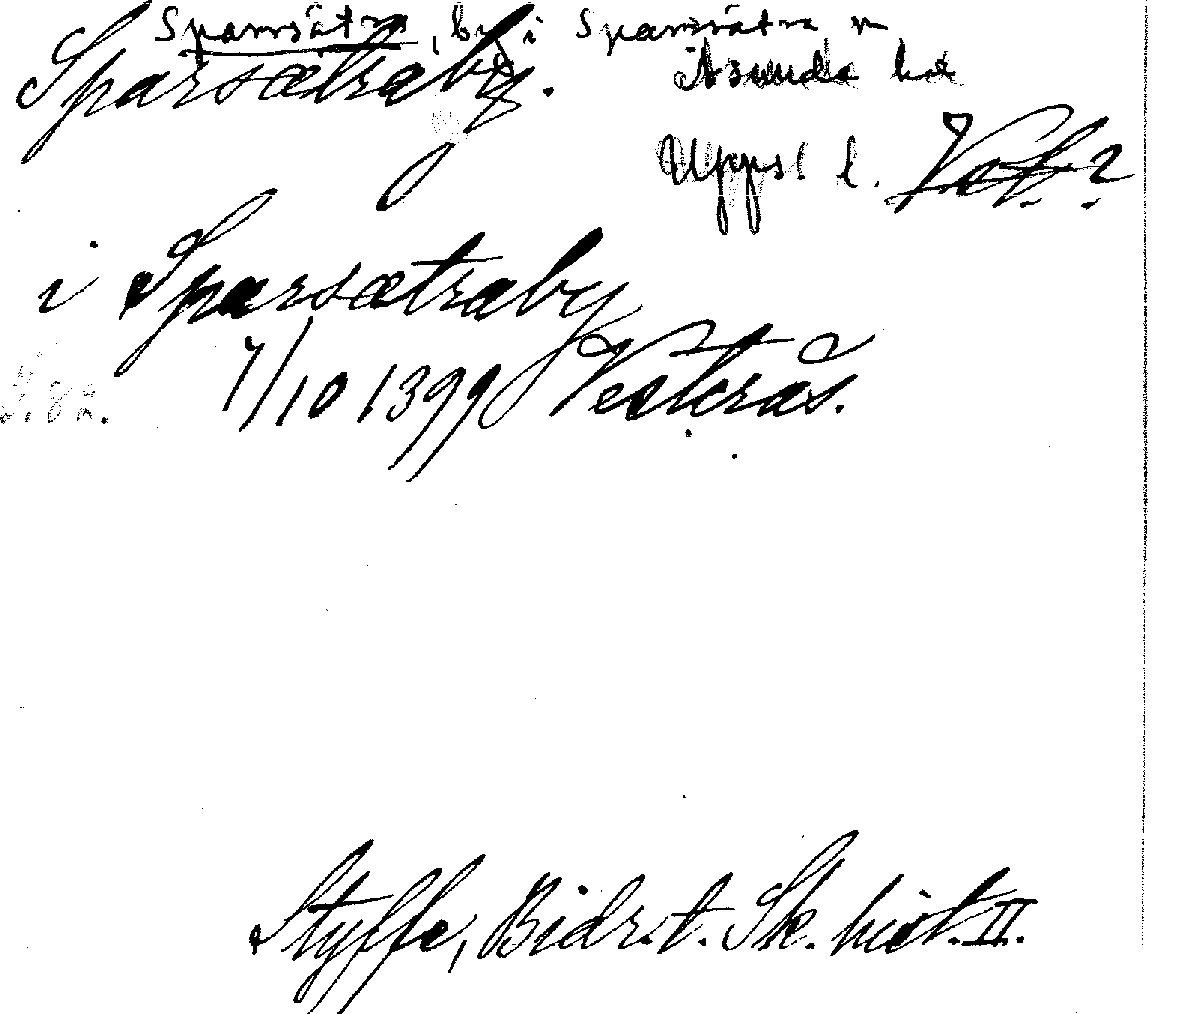 Sparrsätra, by i Sparrsätra sn
Sparsætraby.
Åsunda hd
Uppsl l. Vstl.?
i Sparsætraby
7/10 1399 Vesterås.
S. 82.
Styffe, Bidr. t. Sk. hist. II.